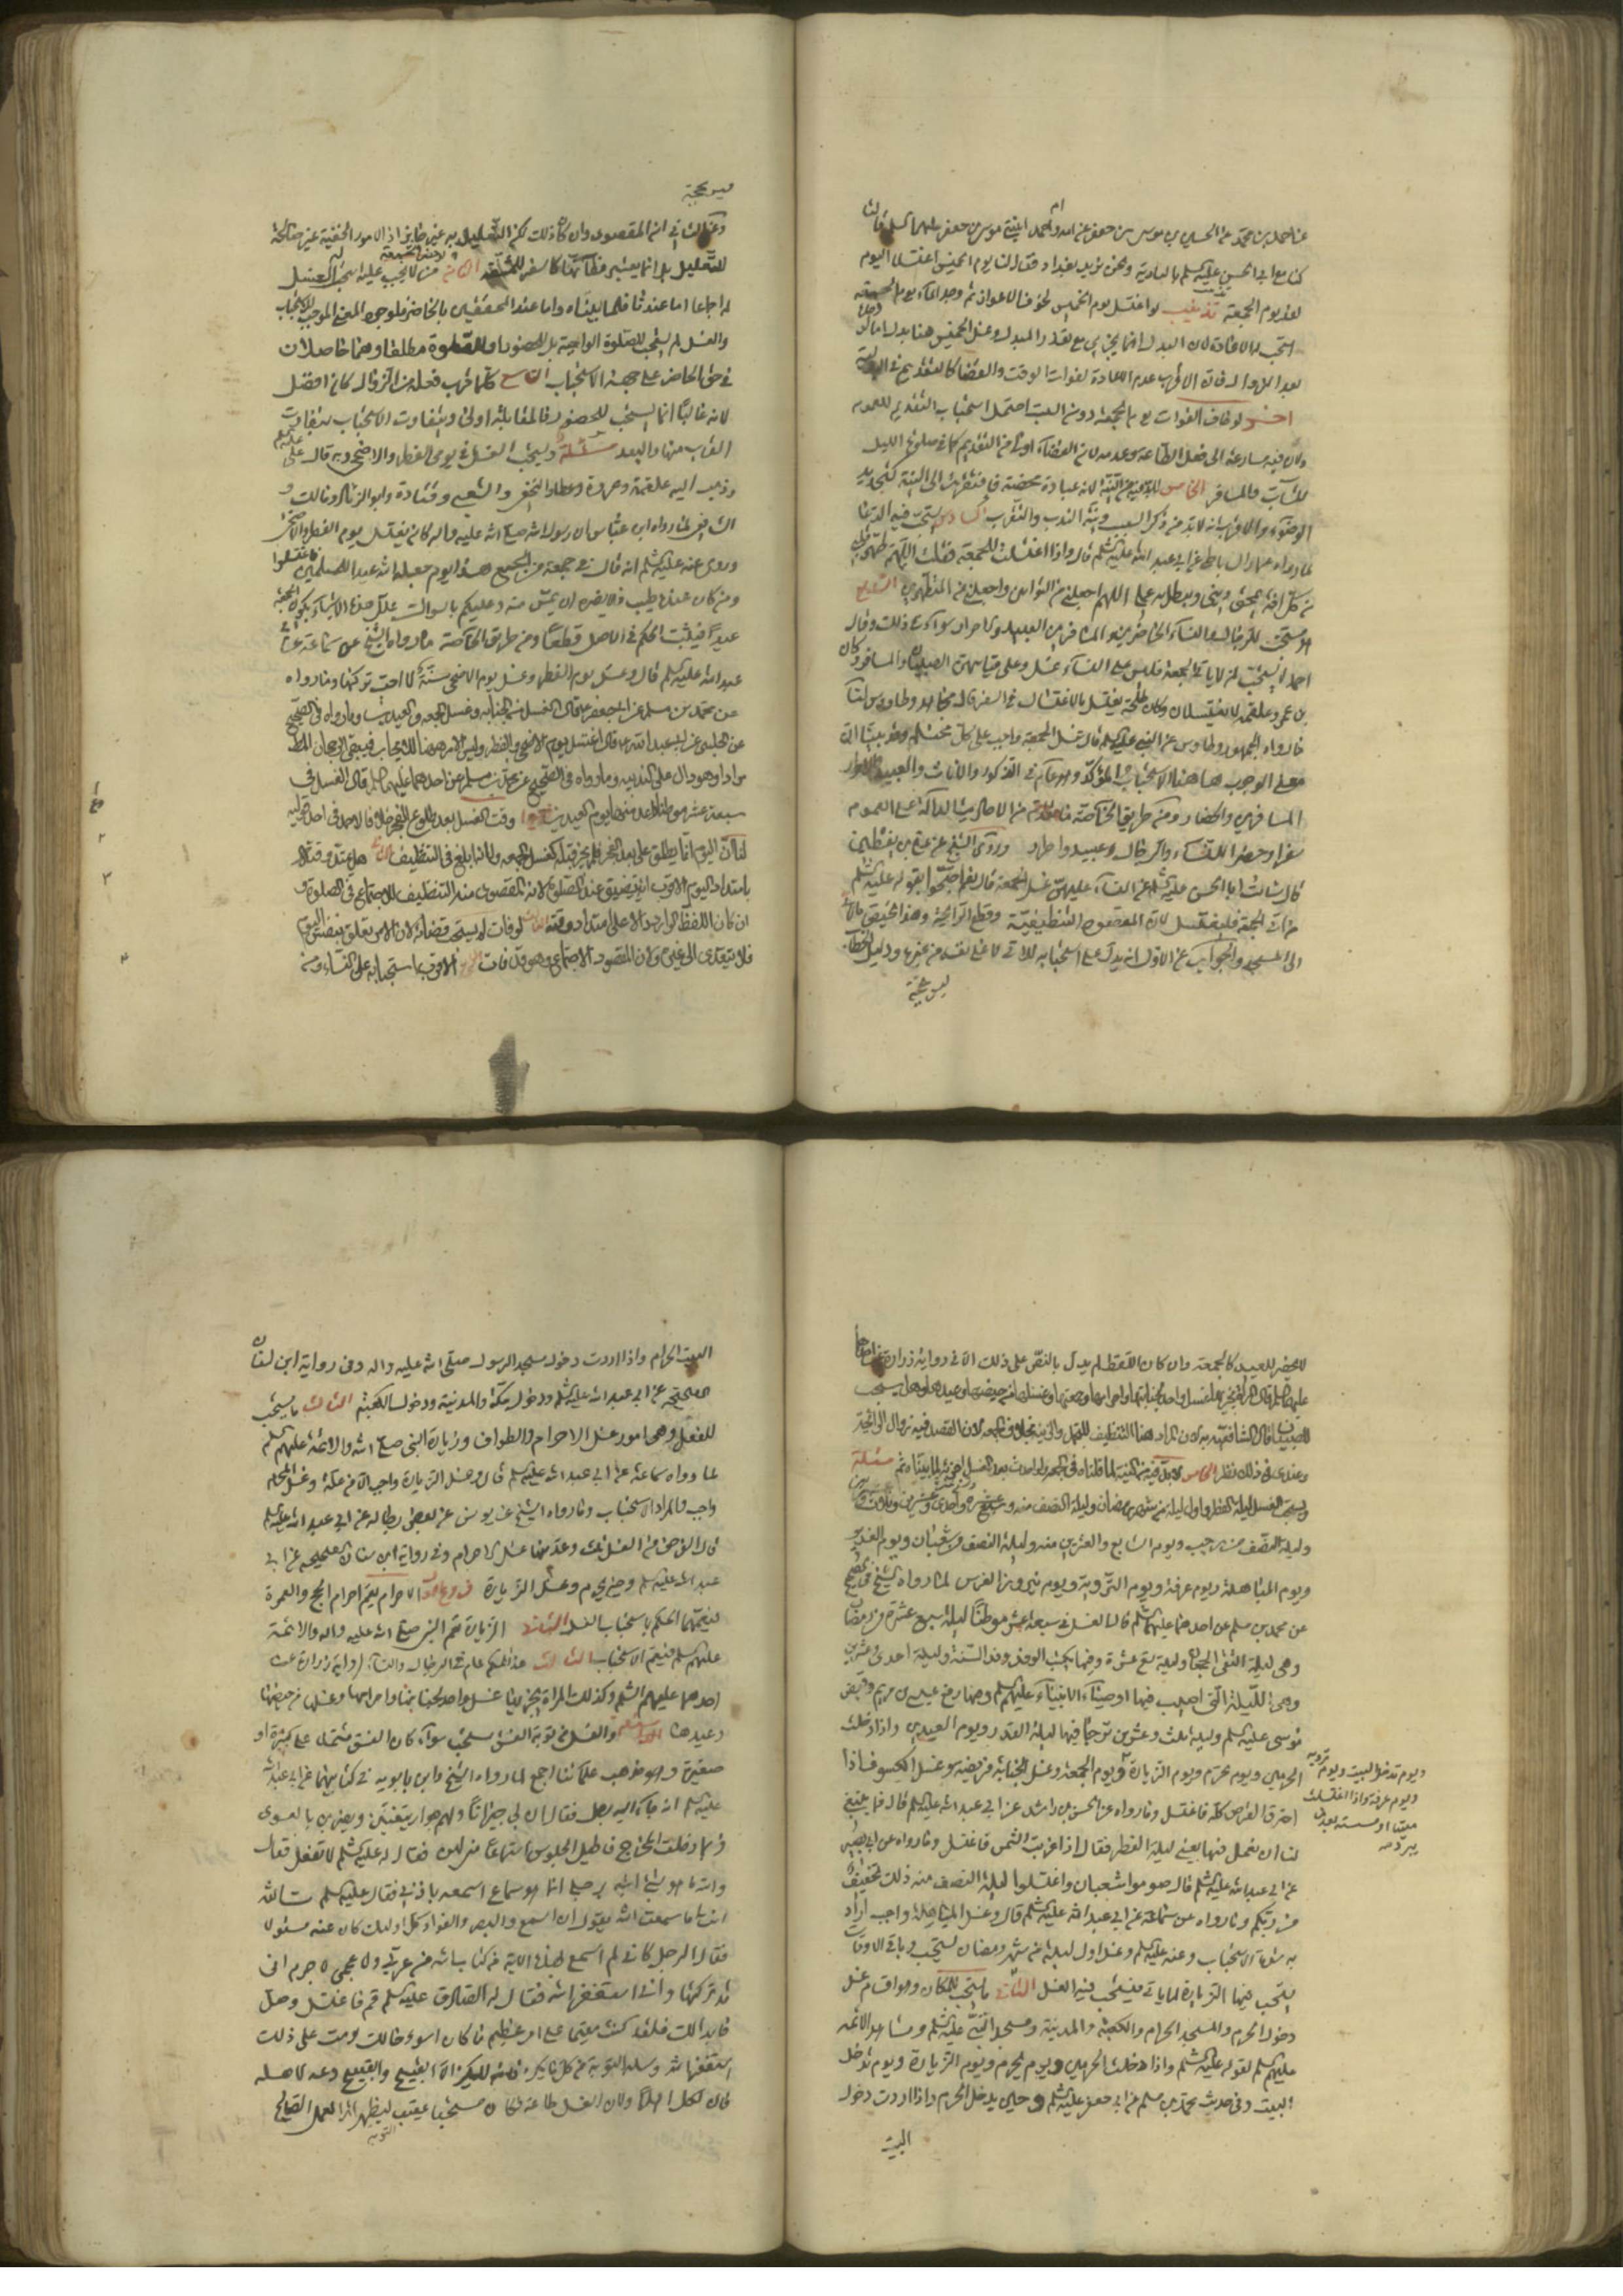 عن احمد بن محمد عن الحسين بن موسى بن جعفر عن امه وام احمد ابنة موسى بن جعفر عليهما السلم قالتا
كنا مع ابى الحسن عليه السلم بالبادية ونحن نريد بغداد فقال لنا يوم الخميس اغتسلا اليوم
لغد يوم الجمعة تذنيب لو اغتسل يوم الخميس لخوف الاعواز ثم وجد الماء يوم الجمعة
استحب له الاعادة لان البدل انما يجزى مع تعذر المبدل وغسل الخميس هنا بدل اما لو
بعد الزوال فان الاقرب عدم الاعادة لفوات الوقت والقضا كالتقديم فى البدلية
اخر لو خاف الفوات يوم الجمعة دون السبت احتمل استحباب التقديم للعموم
ولان فيه مسارعة الى فعل الطاعة وعدمه لان القضاء اولى من التقديم كما فى صلوة الليل
للشاب والمسافر الخامس لا بد فيه من النية لانه عبادة محضة فافتقرت الى النية كتجديد
الوضوء والاقرب انه لا بد من ذكر السبب ونية الندب والتقرب السادس يستحب فيه الدعا
لما رواه عمار الساباطى عن ابى عبد الله عليه السلم قال واذا اغتسلت للجمعة فقلت اللهم طهر قلبى
من كل افة تمحق دينى وتبطل به عملى اللهم اجعلنى من التوابين واجعلنى من المتطهرين السابع
هو مستحب للرجال والنساء الحاضرين والمسافرين العبيد والاحرار سواء فى ذلك وقال
احمد لا يستحب لمن لا ياتى الجمعة فليس على النساء غسل وعلى قياسهن الصبيان والمسافر وكان
بن عمر وعلقمة لا يغتسلان وكان طلحة يغتسل بالاغتسال فى السفر قاله مجاهد وطاوس لنا
ما رواه الجمهور وطاوس عن النبى عليه السلم قال غسل الجمعة واجب على كل محتلم وقد بينا ان
معنى الوجوب هاهنا الاستحباب المؤكد وهو عام فى الذكور والاناث والعبيد والاحرار
المسافرين والحضار ومن طريق الخاصة ما تقدم من الاحاديث الدالة على العموم
سفرا وحضرا للنساء والرجال وعبيد واحرار وروى الشيخ عن على بن يقطين
قال سالت ابا الحسن عليه السلم عن النساء عليهن غسل الجمعة قال نعم احتجوا بقوله عليه السلم
من اتى الجمعة فليغتسل لان المقصود التنظيف وقطع الرائحة وهذا مختص بالاتى
الى المسجد والجواب عن الاول انه يدل على استحبابه للاتى لا على نفيه من غيره ودليل الخطاب
ليس بحجة
ليس بحجة
وعن الثانى انه المقصود وان كان ذلك لكن التعليل به غير جايز اذ الامور الخفية غير صالحة
للتعليل بل انما يعتبر مظانها كالسفر للمشقة الثامن من لا يجب عليه يستحب له الغسل
له اجماعا اما عندنا فلما بيناه واما عند المخصصين بالحاضر فلوجود المعنى الموجب للاستحباب
والغسل لم يستحب للصلوة الواجبة بل للحضور او للصلوة مطلقا وهما حاصلان
فى حق الحاضر على جهة الاستحباب التاسع كلما قرب فعله من الزوال كان افضل
لانه غالبا انما يستحب للحضور فالمقابلة اولى ويتفاوت الاستحباب بتفاوت
القرب منها والبعد مسئلة ويستحب الغسل فى يومى الفطر والاضحى وبه قال على عليه السلم
وذهب اليه علقمة وعروة وعطاء والنخعى والشعبى وقتادة وابو الزناد ومالك و
الشافعى لنا ما رواه ابن عباس ان رسول الله صلى الله عليه واله كان يغتسل يوم الفطر والاضحى
وروى عنه عليه السلم انه قال فى جمعة من الجمع هذا يوم جعله الله عيدا للمسلمين فاغتسلوا
ومن كان عنده طيب فلا يضره ان يمس منه وعليكم بالسواك علل هذه الاشياء بكون الجمعة
عيدا فيثبت الحكم فى الاصل قطعا ومن طريق الخاصة ما رواه الشيخ عن سماعة عن ابى
عبد الله عليه السلم قال وغسل يوم الفطر وغسل يوم الاضحى سنة لا احب تركها وما رواه
عن محمد بن مسلم عن ابى جعفر عليه السلم قال الغسل من الجنابة وغسل الجمعة والعيدين وما رواه فى الصحيح
عن الحلبى عن ابى عبد الله قال اغتسل يوم الاضحى والفطر وليس الامر هاهنا للايجاب فيبقى الرجحان المطلق
مرادا وهو دال على الندبية وما رواه فى الصحيح عن محمد بن مسلم عن احدهما عليهما السلم قال الغسل فى
سبعة عشر موطنا وعد منها يوم العيدين فروع ا وقت الغسل بعد طلوع الفجر خلافا لاحمد فى احد قوليه
لنا ان اليوم انما يطلق على بعد الفجر فلم يجز قبله كغسل الجمعة ولانه ابلغ فى التنظيف الثانى هل يمتد وقته
بامتداد اليوم الاقرب انه يتضيق عند الصلوة لان المقصود منه التنظيف للاجتماع فى الصلوة و
ان كان اللفظ الوارد دالا على امتداد وقته الثالث لو فات لم يستحب قضائه لان الامر يتعلق بنفس اليوم
فلا يتعدى الى غيره ولان المقصود الاجتماع وهو قد فات الرابع الاقرب استحبابه على النساء ومن
لا يحضر للعيد كالجمعة وان كان اللفظ لم يدل بالنص على ذلك الا فى رواية زرارة عن احدهما
عليهما السلم قال المراة يجزيها غسل واحد لجنابتها واحرامها وجمعتها وغسلها من حيضها وعيدها وهل يستحب
للصبيان قال الشافعى به لان المراد هنا التنظيف للتجمل والزينة بخلاف الجمعة لان القصد فيه زوال الرائحة
وعندى فى ذلك نظر الخامس لا بد فيه من النية لما قلناه فى الجمعة ولو احدث بعد الغسل اجزئه لما بيناه ثم مسئلة
ويستحب الغسل ليلة الفطر واول ليلة من شهر رمضان وليلة النصف منه وسبع عشرة واحدى وعشرين وثلاث وعشرين
وليلة النصف من رجب ويوم السابع والعشرين منه وليلة النصف من شعبان ويوم الغدير
ويوم المباهلة ويوم عرفة ويوم التروية ويوم نيروز الفرس لما رواه الشيخ فى الصحيح
عن محمد بن مسلم عن احدهما عليهما السلم قال الغسل فى سبعة عشر موطنا ليلة سبع عشرة من رمضان
وهى ليلة التقى الجمعان وليلة تسع عشرة وفيها يكتب الوفد وفد السنة وليلة احدى وعشرين
وهى الليلة التى اصيب فيها اوصياء الانبياء عليهم السلم وفيها رفع عيسى بن مريم وقبض
موسى عليه السلم وليلة ثلث وعشرين ترجا فيها ليلة القدر ويوم العيدين واذا دخلت
الحرمين ويوم تحرم ويوم الزيارة ويوم الجمعة وغسل الجنابة فريضه وغسل الكسوف اذا
احترق القرص كله فاغتسل وما رواه عن الحسن بن راشد عن ابى عبد الله عليه السلم قال فما ينبغى
لنا ان نعمل فيها يعنى ليلة الفطر فقال اذا غربت الشمس فاغتسل وما رواه عن ابى بصير
عن ابى عبد الله عليه السلم قال صوموا شعبان واغتسلوا ليلة النصف منه ذلك تخفيف
من ربكم وما رواه عن سماعة عن ابى عبد الله عليه السلم قال وغسل المباهلة واجب اراد
به شدة الاستحباب وعنه عليه السلم وغسل اول ليلة من شهر رمضان يستحب وباقى الاوقات
يستحب فيها الزيارة لما ياتى فيستحب فيه الغسل الثانى ما يستحب للمكان وهو اقسام غسل
دخول الحرم والمسجد الحرام والكعبة والمدينة ومسجد النبى عليه السلم ومشاهد الائمه
عليهم السلم لقوله عليه السلم واذا دخلت الحرمين ويوم تحرم ويوم الزيارة ويوم تدخل
البيت وفى حديث محمد بن مسلم عن ابى جعفر عليه السلم وحين يدخل الحرم واذا اردت دخول
البيت
ويوم تدخل البيت ويوم تروية
ويوم عرفة واذا اغتسلت
ميتا او مسسته بعد ان
يبرد صه
البيت الحرام واذا اردت دخول مسجد الرسول صلى الله عليه واله وفى رواية ابن سنان
الصحيحه عن ابى عبد الله عليه السلم ودخول مكة والمدينة ودخول الكعبة الثالث ما يستحب
للفعل وهى امور غسل الاحرام والطواف وزيارة النبى صلى الله والائمة عليهم السلم
لما رواه سماعة عن ابى عبد الله عليه السلم قال وغسل الزيارة واجب الا من علة وغسل المحرم
واجب فالمراد الاستحباب وما رواه الشيخ عن يونس عن بعض رجاله عن ابى عبد الله عليه السلم
قال الفرض من الغسل ثلث وعد منها غسل الاحرام وفى رواية ابن سنان الصحيحه عن ابى
عبد الله عليه السلم وحين يحرم وغسل الزيارة فروع الاول الاحرام يعم احرام الحج والعمرة
فيعمهما الحكم باستحباب الغسل الثانى الزيارة تعم النبى صلى الله عليه واله والائمة
عليهم السلم فيعم الاستحباب الثالث هذا الحكم عام فى الرجال والنساء لرواية زرارة عن
احدهما عليهم السلم وكذلك المراة يجزيها غسل واحد لجنابتها واحرامها وغسلها من حيضها
وعيدها الرابع والغسل من توبة الفسق مستحب سواء كان الفسق مشتملا على كبيرة او
صغيرة وهو مذهب علمائنا اجمع لما رواه الشيخ وابن بابويه فى كتابيهما عن ابى عبد الله
عليه السلم انه جاء اليه رجل فقال ان لى جيرانا ولهم جوار يتغنين ويضربن بالعود
فربما دخلت المخرج فاطيل الجلوس استماعا منى لهن فقال له عليه السلم لا تفعل فقال
والله ما هو شئ اتيه برجلى انما هو سماع اسمعه باذنى فقال عليه السلم تالله
انت اما سمعت الله يقول ان السمع والبصر والفؤاد كل اولئك كان عنه مسئولا
فقال الرجل كانى لم اسمع بهذه الاية من كتاب الله من عربى ولا عجمى لا جرم انى
قد تركتها وانى استغفر الله فقال له الصادق عليه السلم قم فاغتسل وصل
ما بدا لك فلقد كنت مقيما على امر عظيم ما كان اسوء حالك لو مت على ذلك
استغفر الله وسله التوبة من كل ما يكره فانه لا يكره الا القبيح والقبيح دعه لاهله
فان لكل اهلا ولان الغسل طاعة فكان مستحبا عقيب التوبة ليظهر اثر العمل الصالح